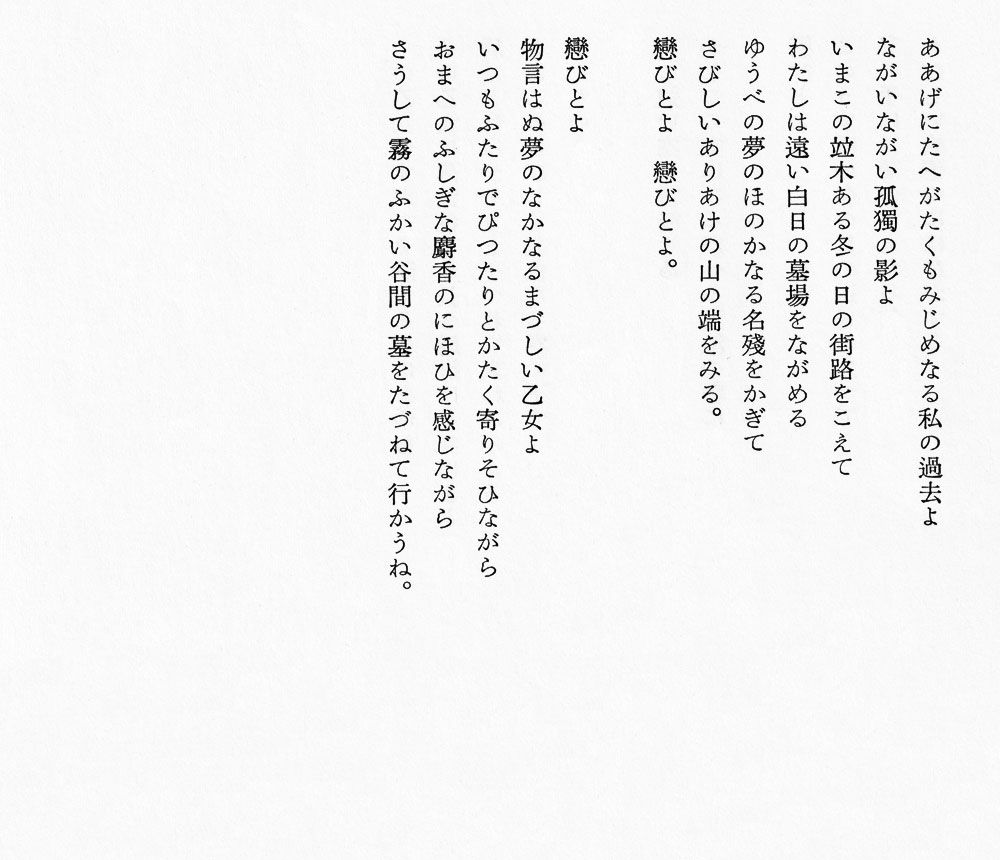 ああげにたへがたくもみじめなる私の過去よ
ながいながい孤獨の影よ
いまこの竝木ある冬の日の街路をこえて
わたしは遠い白日の墓場をながめる
ゆうべの夢のほのかなる名殘をかぎて
さびしいありあけの山の端をみる。
戀びとよ　戀びとよ。
戀びとよ
物言はぬ夢のなかなるまづしい乙女よ
いつもふたりでぴつたりとかたく寄りそひながら
おまへのふしぎな麝香のにほひを感じながら
さうして霧のふかい谷間の墓をたづねて行かうね。